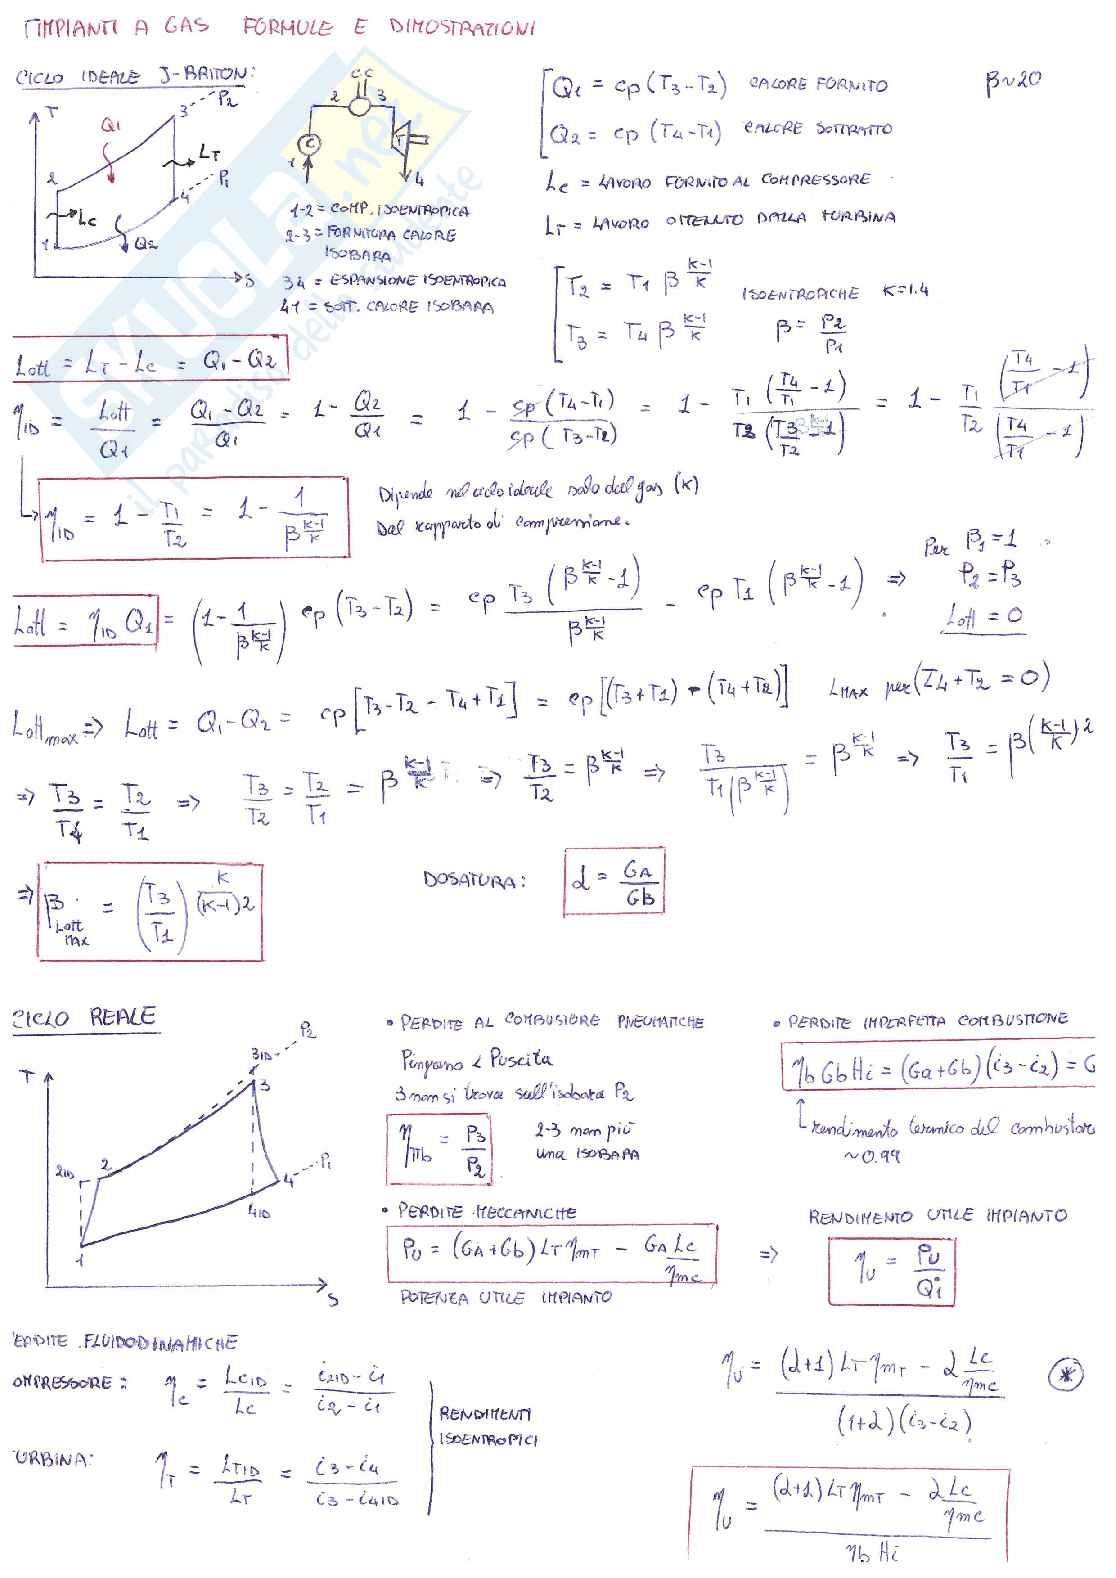 IMPIANTI A GAS FORMULE E DIMOSTRAZIONI
CICLO IDEALE J-BRITON:
T
Q1
3
P2
LT
2
Lc
4
P1
1
Q2
S
C.C
2
3
C
T
1
4
1-2 = COMP. ISOENTROPICA
2-3 = FORNITURA CALORE
ISOBARA
34 = ESPANSIONE ISOENTROPICA
41 = SOTT. CALORE ISOBARA
Q1 = cp (T3-T2) CALORE FORNITO
β~20
Q2 = cp (T4-T1) CALORE SOTTRATTO
Lc = LAVORO FORNITO AL COMPRESSORE
LT = LAVORO OTTENUTO DALLA TURBINA
T2 = T1 β^(K-1/K)
ISOENTROPICHE K=1.4
T3 = T4 β^(K-1/K)
β = P2/P1
Lott = LT - Lc = Q1 - Q2
ηID = Lott/Q1 = (Q1-Q2)/Q1 = 1 - Q2/Q1 = 1 - cp(T4-T1)/cp(T3-T2) = 1 - T1(T4/T1 -1)/T2(T3/T2 -1) = 1 - T1/T2 (T4/T1 -1)/(T4/T1 -1)
ηID = 1 - T1/T2 = 1 - 1/β^(K-1/K)
Dipende nel ciclo ideale solo dal gas (K)
Dal rapporto di compressione.
Lott = ηID Q1 = (1 - 1/β^(K-1/K)) cp (T3-T2) = cp T3 (β^(K-1/K) -1)/β^(K-1/K) - cp T1 (β^(K-1/K) -1) =>
Per β1=1
P2=P3
Lott = 0
Lott max => Lott = Q1-Q2 = cp[T3-T2-T4+T1] = cp[(T3+T1) - (T4+T2)] LMAX per (T4+T2=0)
=> T3/T4 = T2/T1 => T3/T2 = T2/T1 = β^(K-1/K) => T3/T2 = β^(K-1/K) => T3/T1(β^(K-1/K)) = β^(K-1/K) => T3/T1 = β^(K-1/K)2
=> β Lott MAX = (T3/T1)^(K/(K-1)2)
DOSATURA:
α = GA/GB
CICLO REALE
T
3ID
P2
3
2ID
2
4
P1
4ID
1
S
• PERDITE AL COMBUSIORE PNEUMATICHE
Pingano < Puscita
3 non si trova sull'isobara P2
ηπb = P3/P2
2-3 non più
una ISOBARA
• PERDITE IMPERFETTA COMBUSTIONE
ηb Gb Hi = (Ga+Gb)(i3-i2) = G
rendimento termico del combustore
~0.99
• PERDITE MECCANICHE
PU = (GA+Gb) LT ηmT - GA Lc/ηmc
=>
POTENZA UTILE IMPIANTO
RENDIMENTO UTILE IMPIANTO
ηU = PU/Qi
ERDITE FLUIDODINAMICHE
OMPRESSORE: ηc = LcID/Lc = (i2ID-i1)/(i2-i1)
URBINA: ηT = LTID/LT = (i3-i4)/(i3-i4ID)
RENDIMENTI
ISOENTROPICI
ηU = ((α+1) LT ηmT - α Lc/ηmc)/((1+α)(i3-i2)) *
ηU = ((α+1) LT ηmT - α Lc/ηmc)/(ηb Hi)
SKUOLA.net
il paradiso dello studente